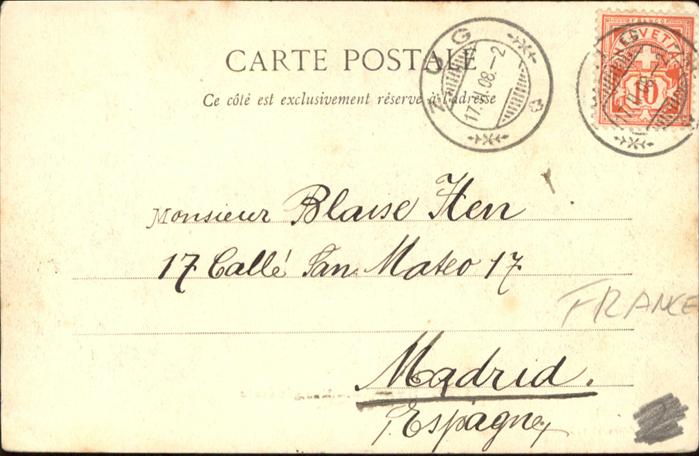 CARTE POSTALE
Ce côté est exclusivement réservé à l'adresse
ZUG
17.VI.08.-2
FRANCO
HELVETIA
10
Monsieur Blaise Hen
17 Callé San Mateo 17
Madrid.
Espagne
FRANCE